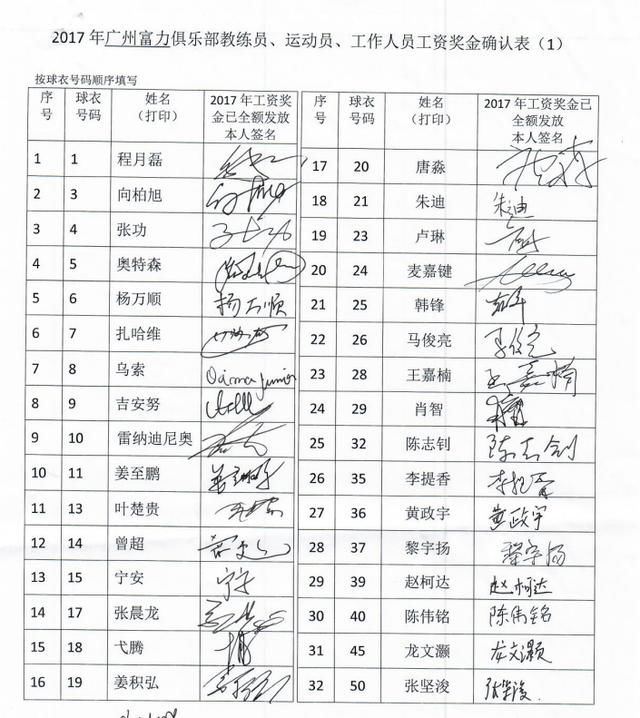 2017年广州富力俱乐部教练员、运动员、工作人员工资奖金确认表（1）
按球衣号码顺序填写
序号 球衣号码 姓名（打印） 2017年工资奖金已全额发放本人签名
1 1 程月磊
2 3 向柏旭
3 4 张功
4 5 奥特森
5 6 杨万顺 杨万顺
6 7 扎哈维
7 8 乌索
8 9 吉安努
9 10 雷纳迪尼奥
10 11 姜至鹏
11 13 叶楚贵
12 14 曾超
13 15 宁安 宁安
14 17 张晨龙
15 18 弋腾
16 19 姜积弘
序号 球衣号码 姓名（打印） 2017年工资奖金已全额发放本人签名
17 20 唐淼
18 21 朱迪 朱迪
19 23 卢琳
20 24 麦嘉键
21 25 韩锋
22 26 马俊亮
23 28 王嘉楠 王嘉楠
24 29 肖智
25 32 陈志钊 陈志钊
26 35 李提香 李提香
27 36 黄政宇 黄政宇
28 37 黎宇扬 黎宇扬
29 39 赵柯达 赵柯达
30 40 陈伟铭 陈伟铭
31 45 龙文灏 龙文灏
32 50 张坚浚 张坚浚